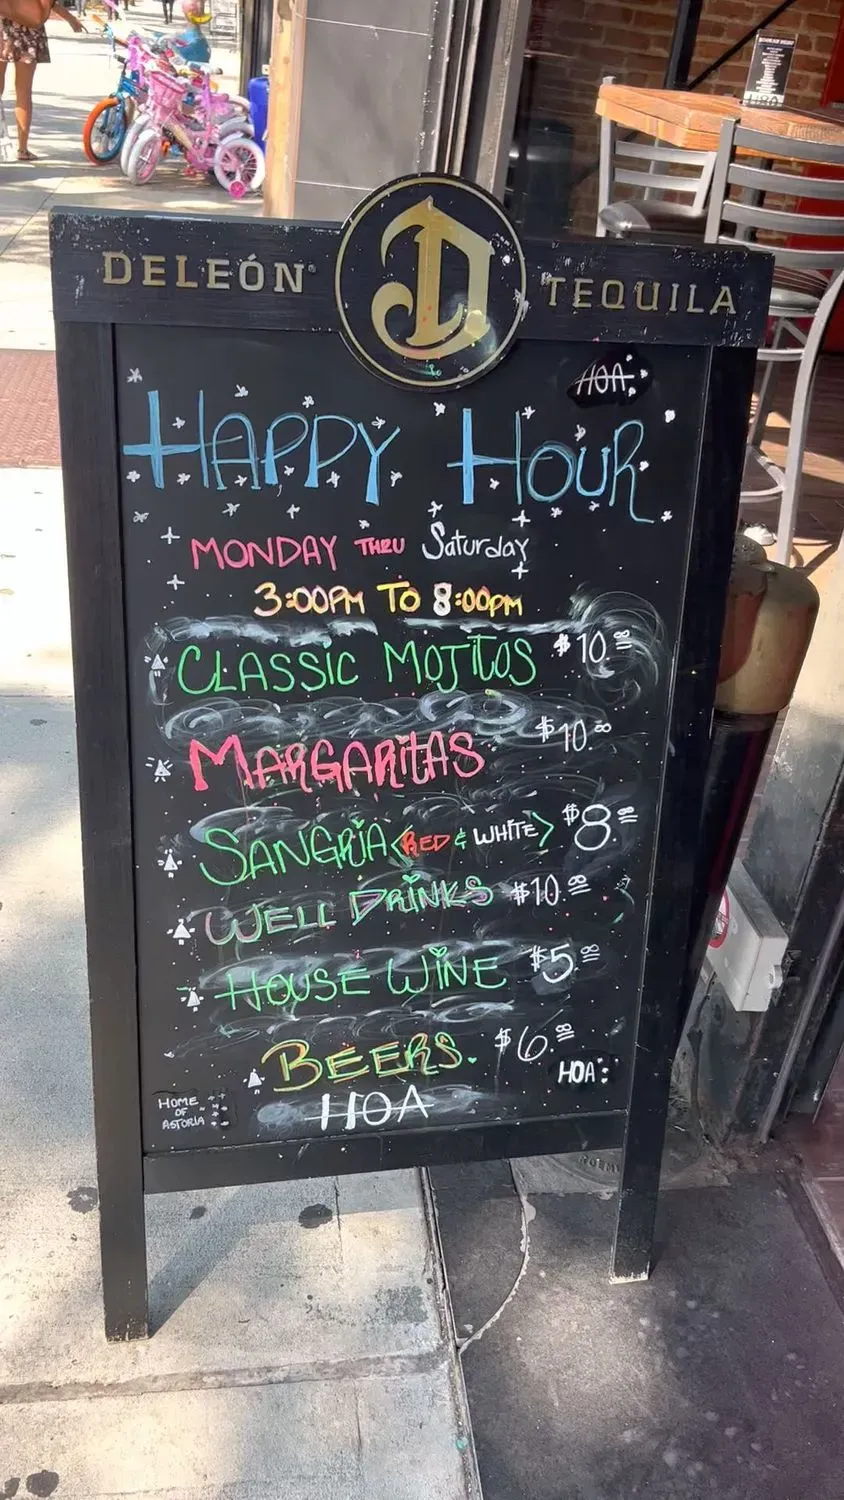 DELEÓN TEQUILA
D
HOA
HAPPY HOUR
MONDAY THRU Saturday
3:00PM TO 8:00PM
CLASSIC MOJITOS $10.00
MARGARITAS $10.00
SANGRIA <RED & WHITE> $8.00
WELL DRINKS $10.00
HOUSE WINE $5.00
BEERS. $6.00
HOA
HOA
HOME
OF
ASTORIA